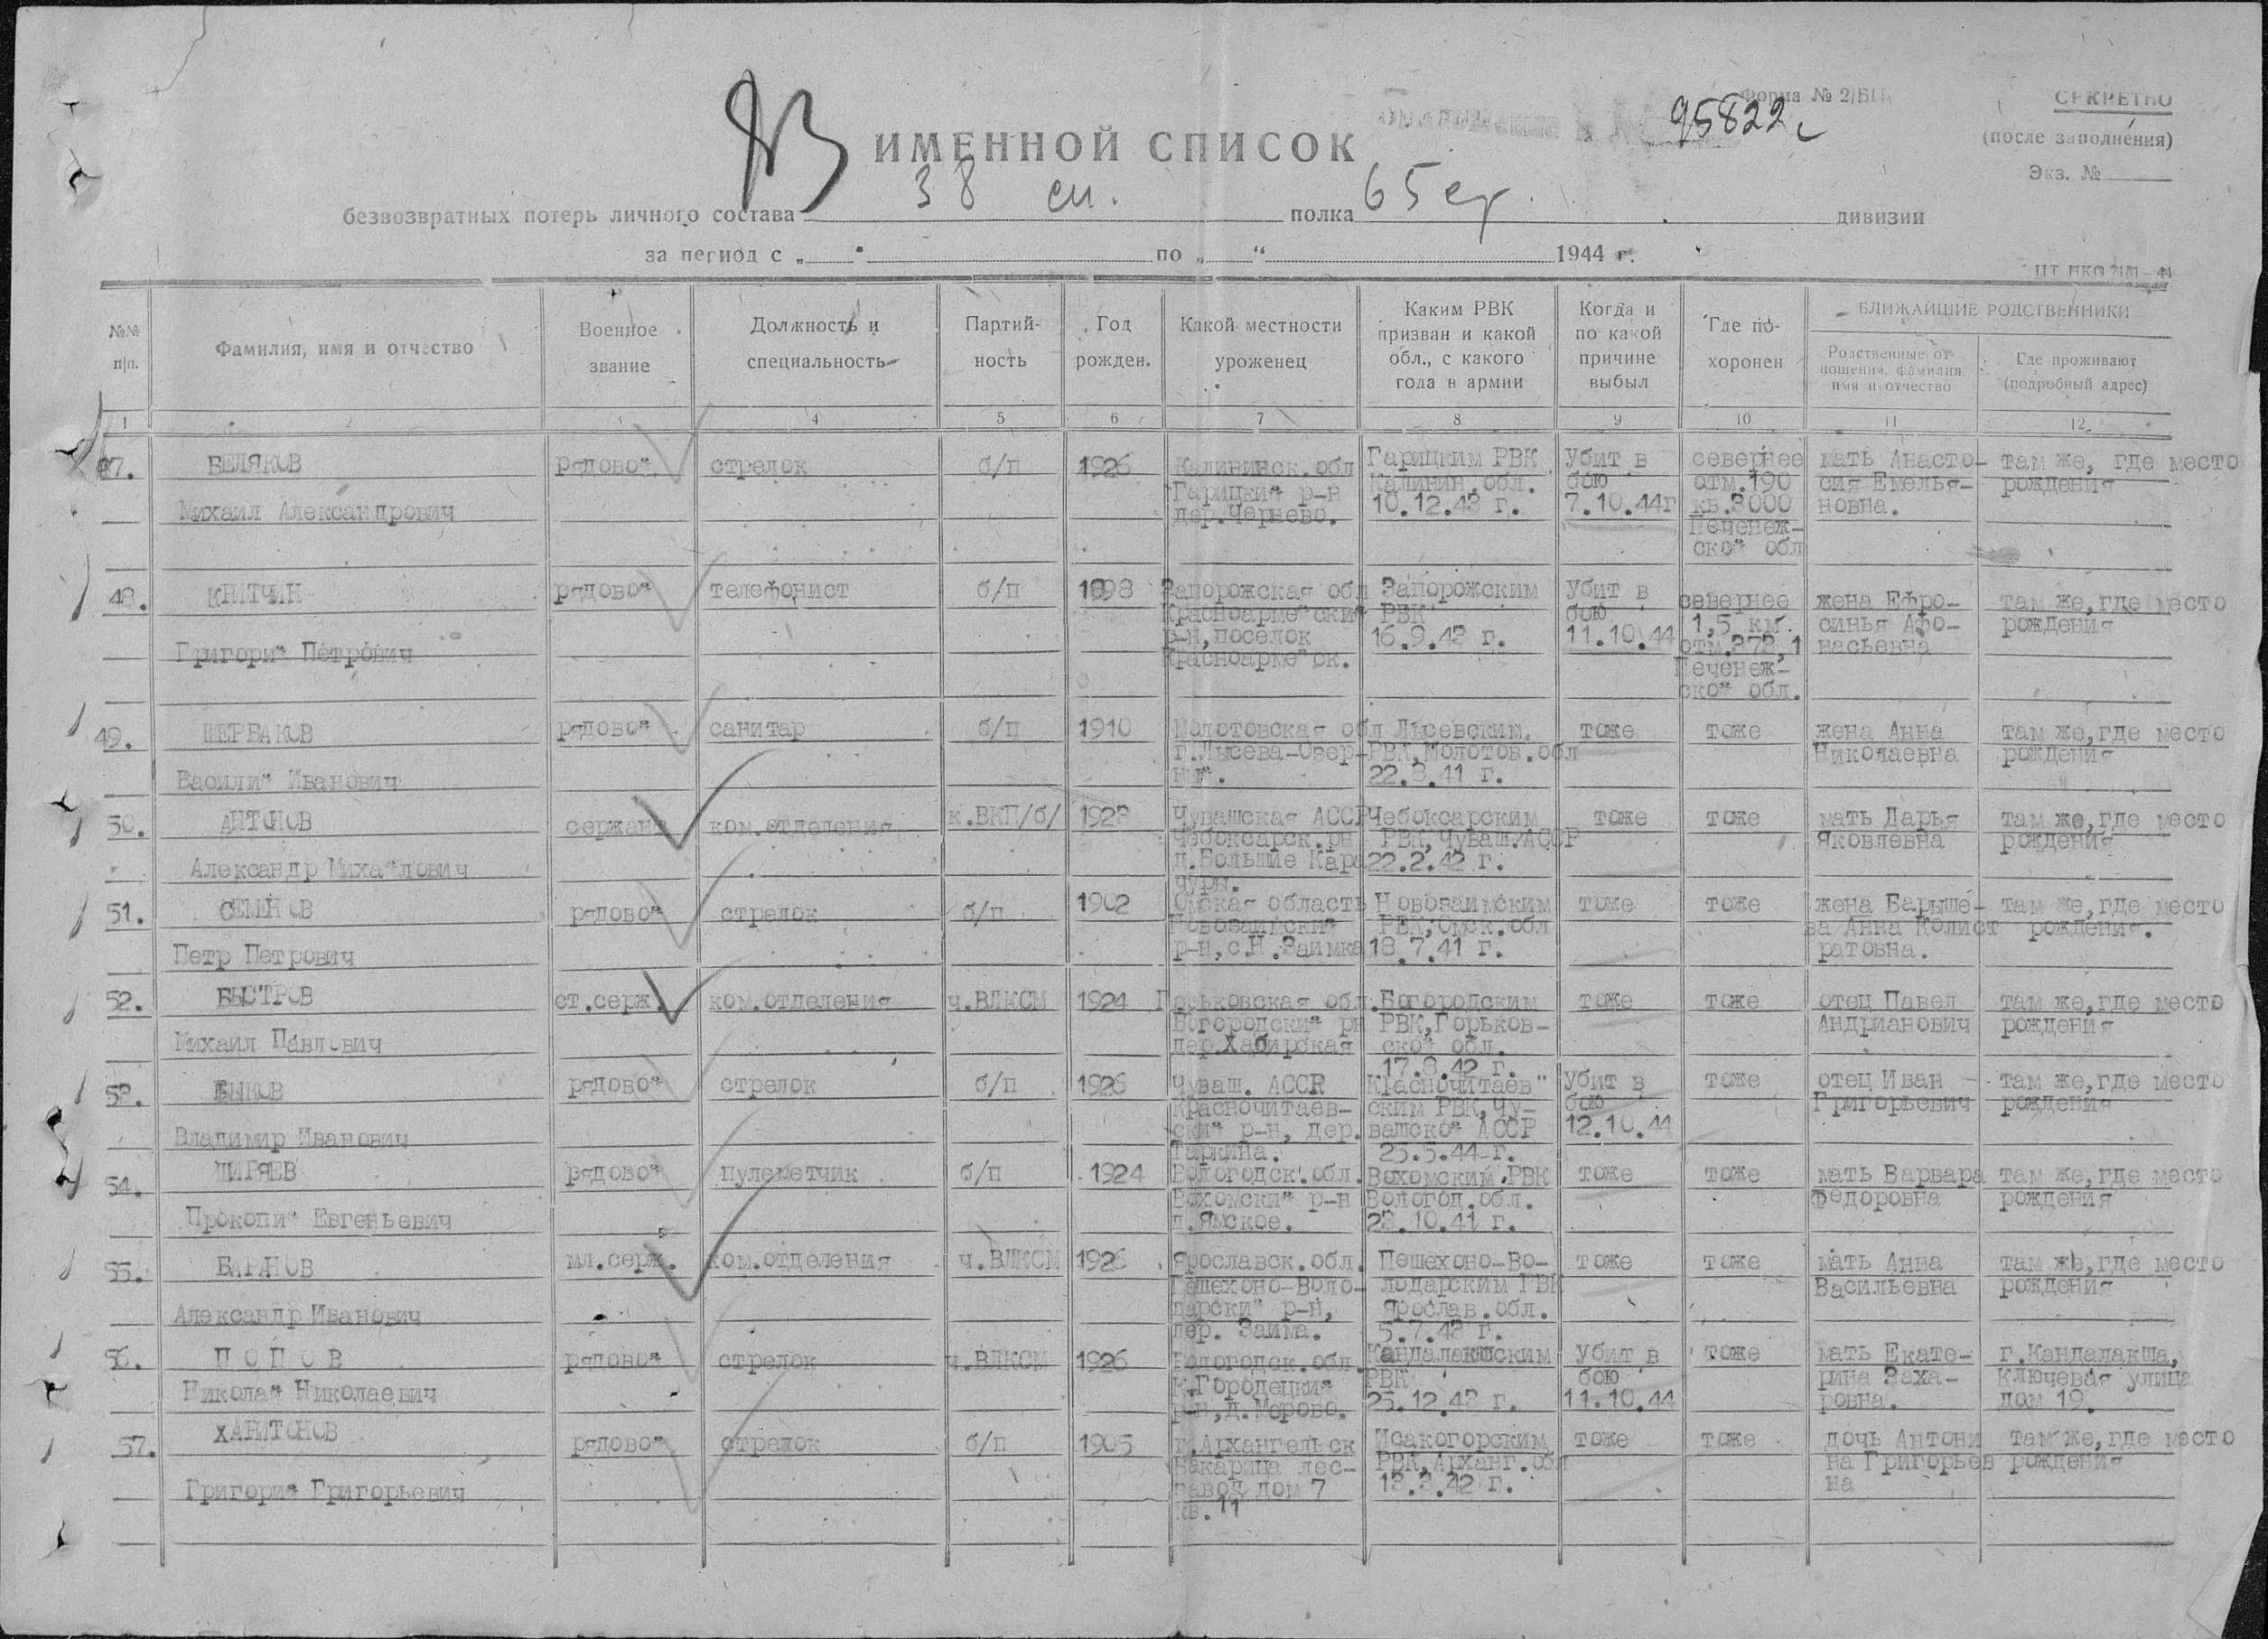 Форма № 2/БП
95822с
СЕКРЕТНО
(после заполнения)
Экз. №
ИМЕННОЙ СПИСОК
безвозвратных потерь личного состава 38 сп. полка 65 ср. дивизии
за период с „ “ по „ “ 1944 г.
№№ п|п.
Фамилия, имя и отчество
Военное звание
Должность и специальность
Партий-ность
Год рожден.
Какой местности уроженец
Каким РВК призван и какой обл., с какого года в армии
Когда и по какой причине выбыл
Где по-хоронен
БЛИЖАЙШИЕ РОДСТВЕННИКИ
Родственные от-ношения, фамилия имя и отчество
Где проживают (подробный адрес)
1 2 3 4 5 6 7 8 9 10 11 12
47. БЕЛЯКОВ рядовой стрелок б/п 1926 Калининск.обл Гарицким РВК Убит в севернее мать Анасто- там же, где место
Гарицкий р-н Калинин.обл. бою отм.190 сия Емелья- рождения
Михаил Александрович дер.Чернево. 10.12.43 г. 7.10.44г кв.3000 новна.
Печенеж-
ской обл
48. КНИТЧИН рядовой телефонист б/п 1898 Запорожская обл Запорожским Убит в севернее жена Ефро- там же,где место
Красноармейский РВК бою 1,5 км. синья Афо- рождения
Григорий Петрович р-н,поселок 16.9.43 г. 11.10.44 отм.373,1 насьевна
Красноармейск. Печенеж-
ской обл.
49. ЩЕРБАКОВ рядовой санитар б/п 1910 Молотовская обл Лысевским. тоже тоже жена Анна там же,где место
г.Лысева-Озер- РВК,Молотов.обл Николаевна рождения
Василий Иванович 22.8.41 г.
50. АНТОНОВ сержант ком.отделения к.ВКП/б/ 1923 Чувашская АССР Чебоксарским тоже тоже мать Дарья там же,где место
Чебоксарск.рн РВК,Чуваш.АССР Яковлевна рождения
Александр Михайлович д.Большие Кара 22.2.42 г.
чуры.
51. СЕМЕНОВ рядовой стрелок б/п 1902 Омская область Новозаимским тоже тоже жена Барыше- там же,где место
Новозаимский РВК,Омск.обл ва Анна Колист рождения.
Петр Петрович р-н,с.Н.Заимка 18.7.41 г. ратовна.
52. БЫСТРОВ ст.серж. ком.отделения ч.ВЛКСМ 1924 Горьковская обл. Богородским тоже тоже отец Павел там же,где место
Богородский рн РВК,Горьков- Андрианович рождения
Михаил Павлович дер.Хабирская ской обл.
17.8.42 г.
53. БЫКОВ рядовой стрелок б/п 1926 Чуваш. АССР Красночитаев" Убит в тоже отец Иван там же,где место
Красночитаев- ским РВК,Чу- бою Григорьевич рождения
Владимир Иванович ский р-н, дер. вашской АССР 12.10.44
Таркина. 25.5.44 г.
54. ШИРЯЕВ рядовой пулеметчик б/п 1924 Вологодск.обл. Вохомским.РВК тоже тоже мать Варвара там же,где место
Вохомский р-н Вологод.обл. Федоровна рождения
Прокопий Евгеньевич д.Ямское. 23.10.41 г.
55. БАРАНОВ мл.серж. ком.отделения ч.ВЛКСМ 1926 Ярославск.обл. Пешехоно-Во- тоже тоже мать Анна там же,где место
Пешехоно-Воло- лодарским РВК Васильевна рождения
Александр Иванович дарский р-н, Ярослав.обл.
дер. Заима. 5.7.43 г.
56. ПОПОВ рядовой стрелок ч.ВЛКСМ 1926 Вологодск.обл. Кандалакшским Убит в тоже мать Екате- г.Кандалакша,
Николай Николаевич К.Городецкий РВК бою рина Заха- Ключевая улица
р-н,д.Морово. 25.12.43 г. 11.10.44 ровна. дом 19.
57. ХАРИТОНОВ рядовой стрелок б/п 1905 г.Архангельск Исакогорским тоже тоже дочь Антони там же,где место
Бакарица лес- РВК,Арханг.обл на Григорьев рождения
Григорий Григорьевич завод дом 7 13.3.42 г. на
кв.11